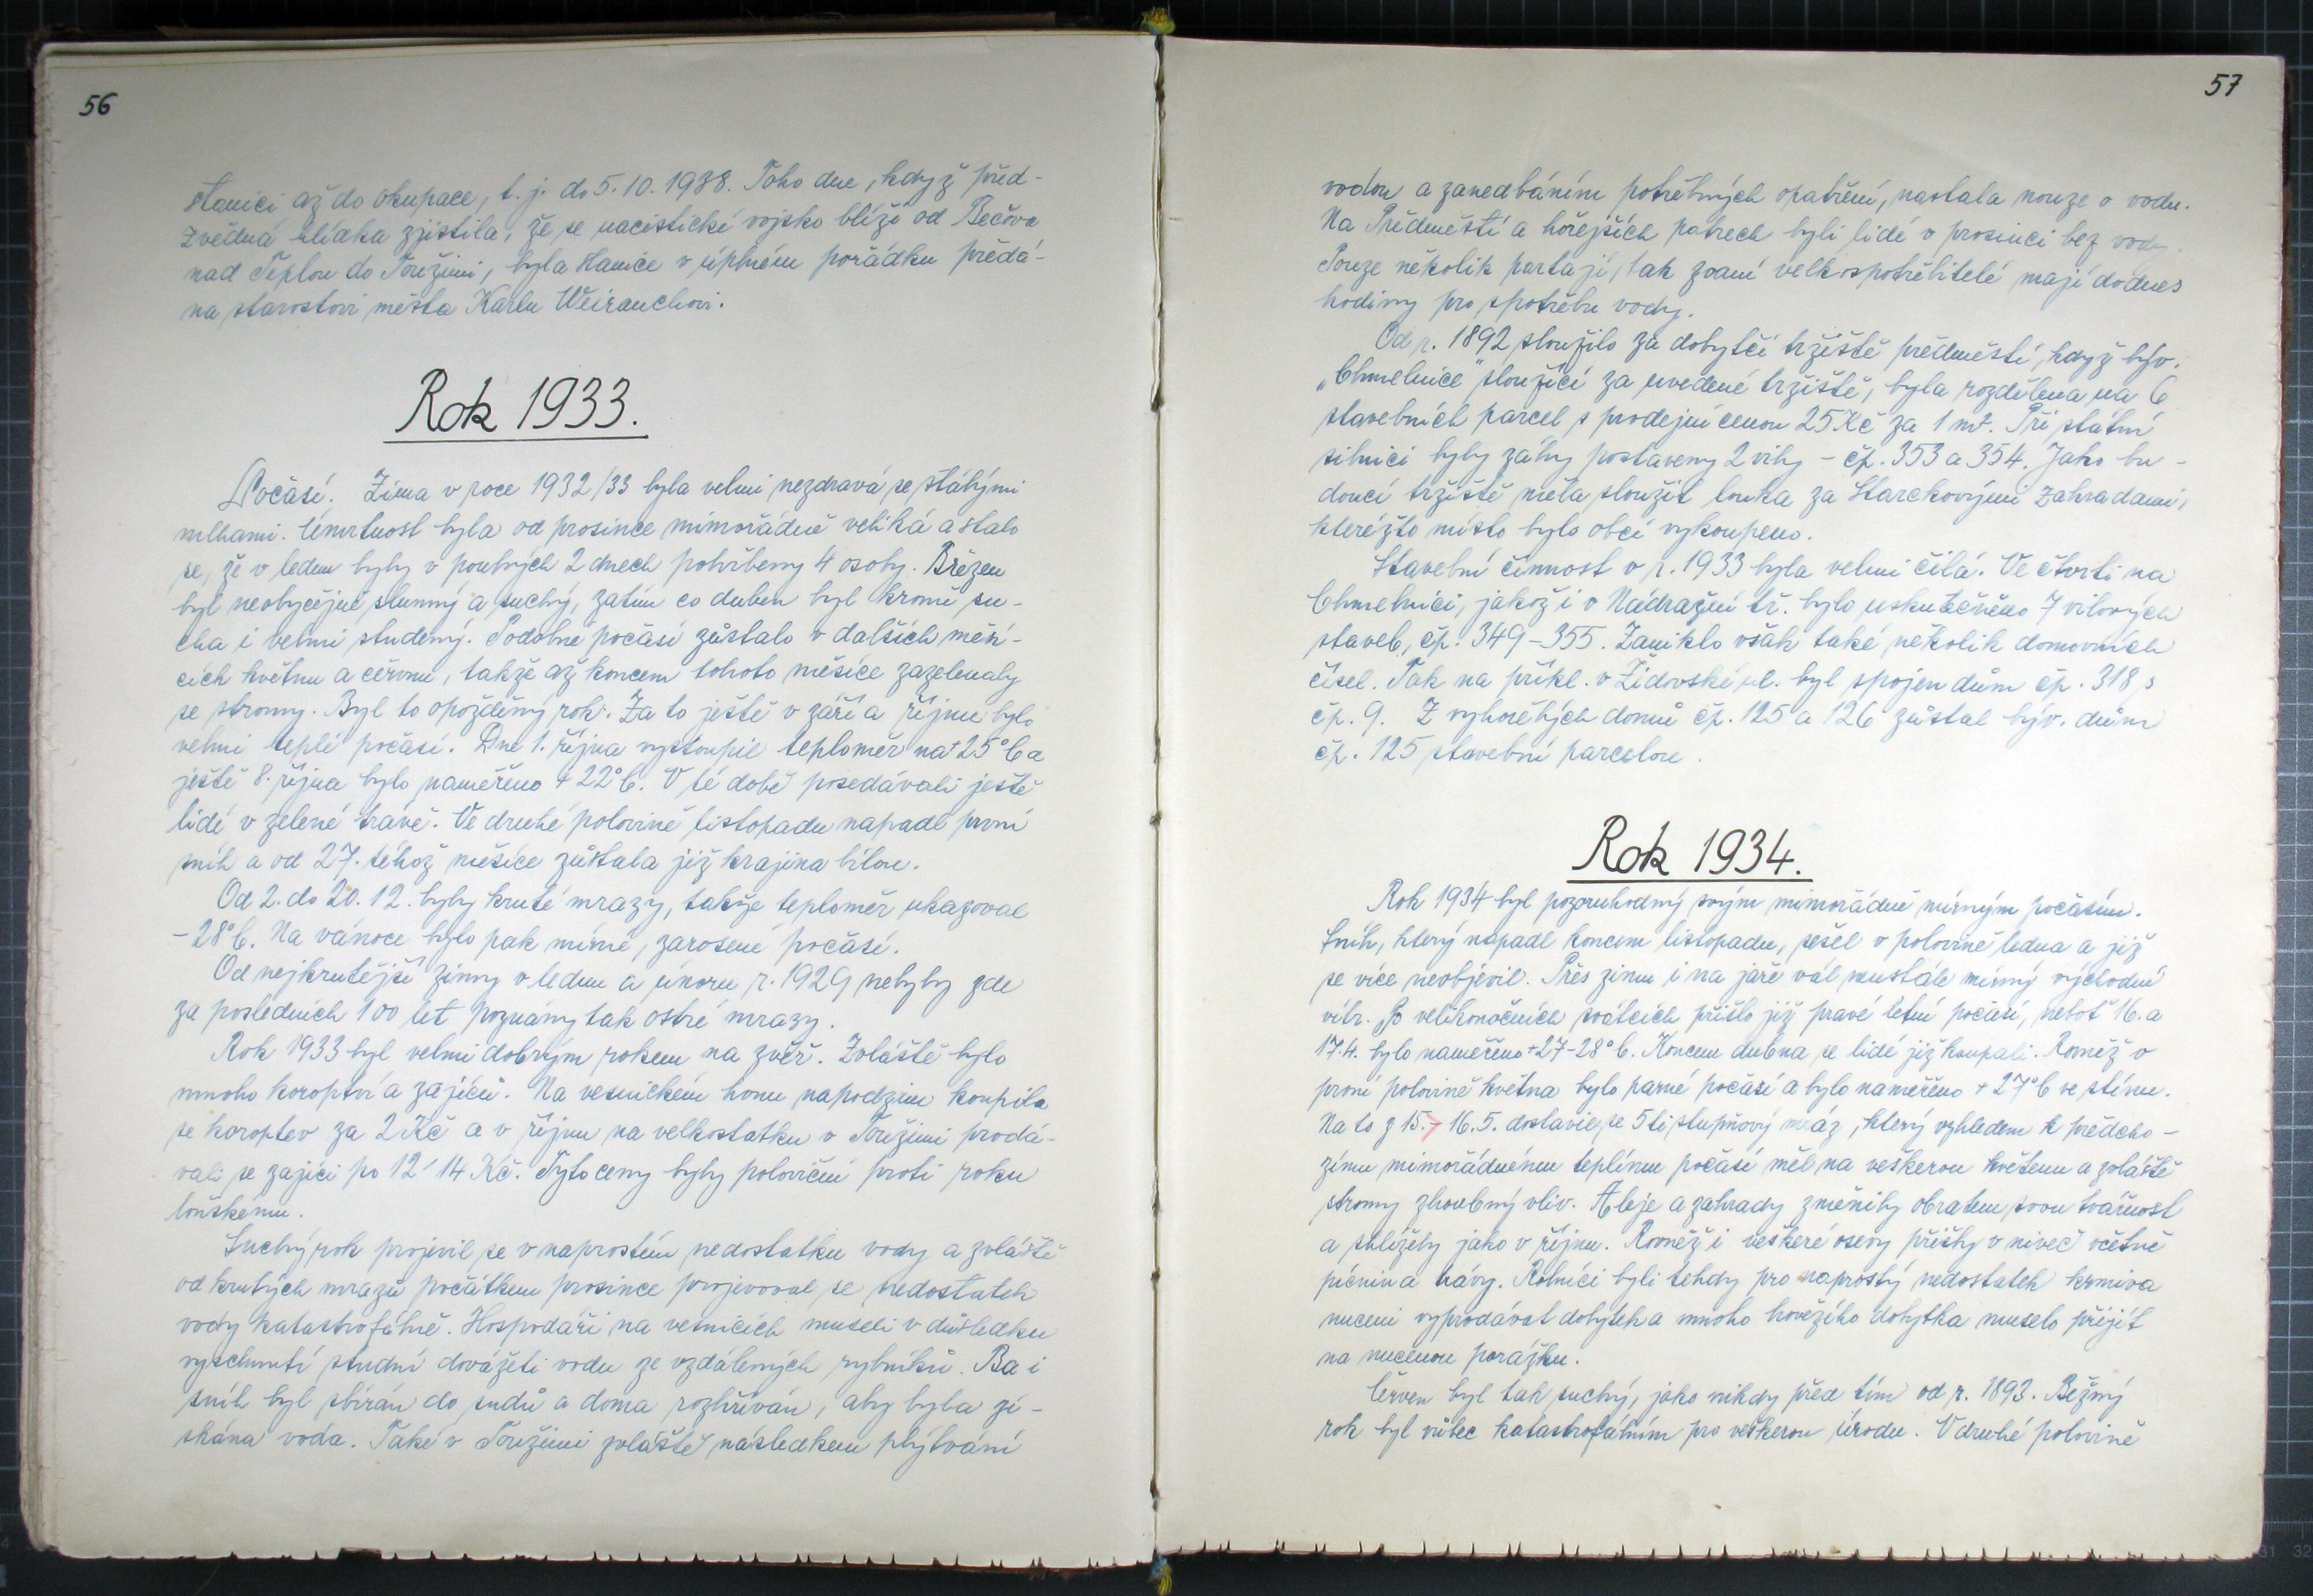 56
stanici až do okupace, t. j. do 5. 10. 1938. Toho dne, když před-
zvědná hlídka zjistila, že se nacistické vojsko blíží od Bečova
nad Teplou do Toužimi, byla stanice v úplném pořádku předá-
na starostovi města Karlu Weirauchovi.
Rok 1933.
Počasí. Zima v roce 1932/33 byla velmi nezdravá se stálými
mlhami. Úmrtnost byla od prosince mimořádně veliká a stalo
se, že v lednu byly v pouhých 2 dnech pohřbeny 4 osoby. Březen
byl neobyčejně slunný a suchý, zatím co duben byl kromě su-
cha i velmi studený. Podobné počasí zůstalo v dalších měsí-
cích květnu a červnu, takže až koncem tohoto měsíce zazelenaly
se stromy. Byl to opožděný rok. Za to ještě v září a říjnu bylo
velmi teplé počasí. Dne 1. října vystoupil teploměr na +25°C a
ještě 8. října bylo naměřeno +22°C. V té době posedávali ještě
lidé v zelené trávě. Ve druhé polovině listopadu napadl první
sníh a od 27. téhož měsíce zůstala již krajina bílou.
Od 2. do 20. 12. byly kruté mrazy, takže teploměr ukazoval
-28°C. Na vánoce bylo pak mírné, zarosené počasí.
Od nejkrutější zimy v lednu a únoru r. 1929 nebyly zde
za posledních 100 let poznány tak ostré mrazy.
Rok 1933 byl velmi dobrým rokem na zvěř. Zvláště bylo
mnoho koroptví a zajíců. Na vesnickém honu na podzim koupila
se koroptev za 2 Kč a v říjnu na velkostatku v Toužimi prodá-
vali se zajíci po 12-14 Kč. Tyto ceny byly poloviční proti roku
loňskému.
Suchý rok projevil se v naprostém nedostatku vody a zvláště
od krutých mrazů počátkem prosince projevoval se nedostatek
vody katastrofálně. Hospodáři na vesnicích museli v důsledku
vyschnutí studní dovážeti vodu ze vzdálených rybníků. Ba i
sníh byl sbírán do sudů a doma rozhříván, aby byla zí-
skána voda. Také v Toužimi zvláště následkem plýtvání
57
vodou a zanedbáním potřebných opatření, nastala nouze o vodu.
Na Předměstí a hořejších patrech byli lidé v prosinci bez vody.
Pouze několik partají, tak zvaní velkospotřebitelé mají dodnes
hodiny pro spotřebu vody.
Od r. 1892 sloužilo za dobytčí tržiště předměstí, když býv.
„Chmelnice" sloužící za uvedené tržiště, byla rozdělena na 6
stavebních parcel s prodejní cenou 25 Kč za 1 m². Při státní
silnici byly záhy postaveny 2 vily - čp. 353 a 354. Jako bu-
doucí tržiště měla sloužit louka za Starckovými zahradami,
kteréžto místo bylo obcí vykoupeno.
Stavební činnost v r. 1933 byla velmi čilá. Ve čtvrti na
Chmelnici, jakož i v Nádražní tř. bylo uskutečněno 7 vilových
staveb, čp. 349-355. Zaniklo však také několik domovních
čísel. Tak na příkl. v Židovské ul. byl spojen dům čp. 318 s
čp. 9. Z vyhořelých domů čp. 125 a 126 zůstal býv. dům
čp. 125 stavební parcelou.
Rok 1934.
Rok 1934 byl pozoruhodný svým mimořádně mírným počasím.
Sníh, který napadl koncem listopadu, sešel v polovině ledna a již
se více neobjevil. Přes zimu i na jaře vál neustále mírný východní
vítr. Po velikonočních svátcích přišlo již pravé letní počasí, neboť 16. a
17. 4. bylo naměřeno +27-28°C. Koncem dubna se lidé již koupali. Rovněž v
první polovině května bylo parné počasí a bylo naměřeno +27°C ve stínu.
Na to z 15. - 16. 5. dostavil se 5ti stupňový mráz, který vzhledem k předcho-
zímu mimořádnému teplému počasí měl na veškerou květenu a zvláště
stromy zhoubný vliv. Aleje a zahrady změnily obratem svou tvářnost
a shlížely jako v říjnu. Rovněž i veškeré osevy přišly v niveč včetně
pícnin a trávy. Rolníci byli tehdy pro naprostý nedostatek krmiva
nuceni vyprodávat dobytek a mnoho hovězího dobytka muselo přijít
na nucenou porážku.
Červen byl tak suchý, jako nikdy před tím od r. 1893. Běžný
rok byl vůbec katastrofálním pro veškerou úrodu. V druhé polovině